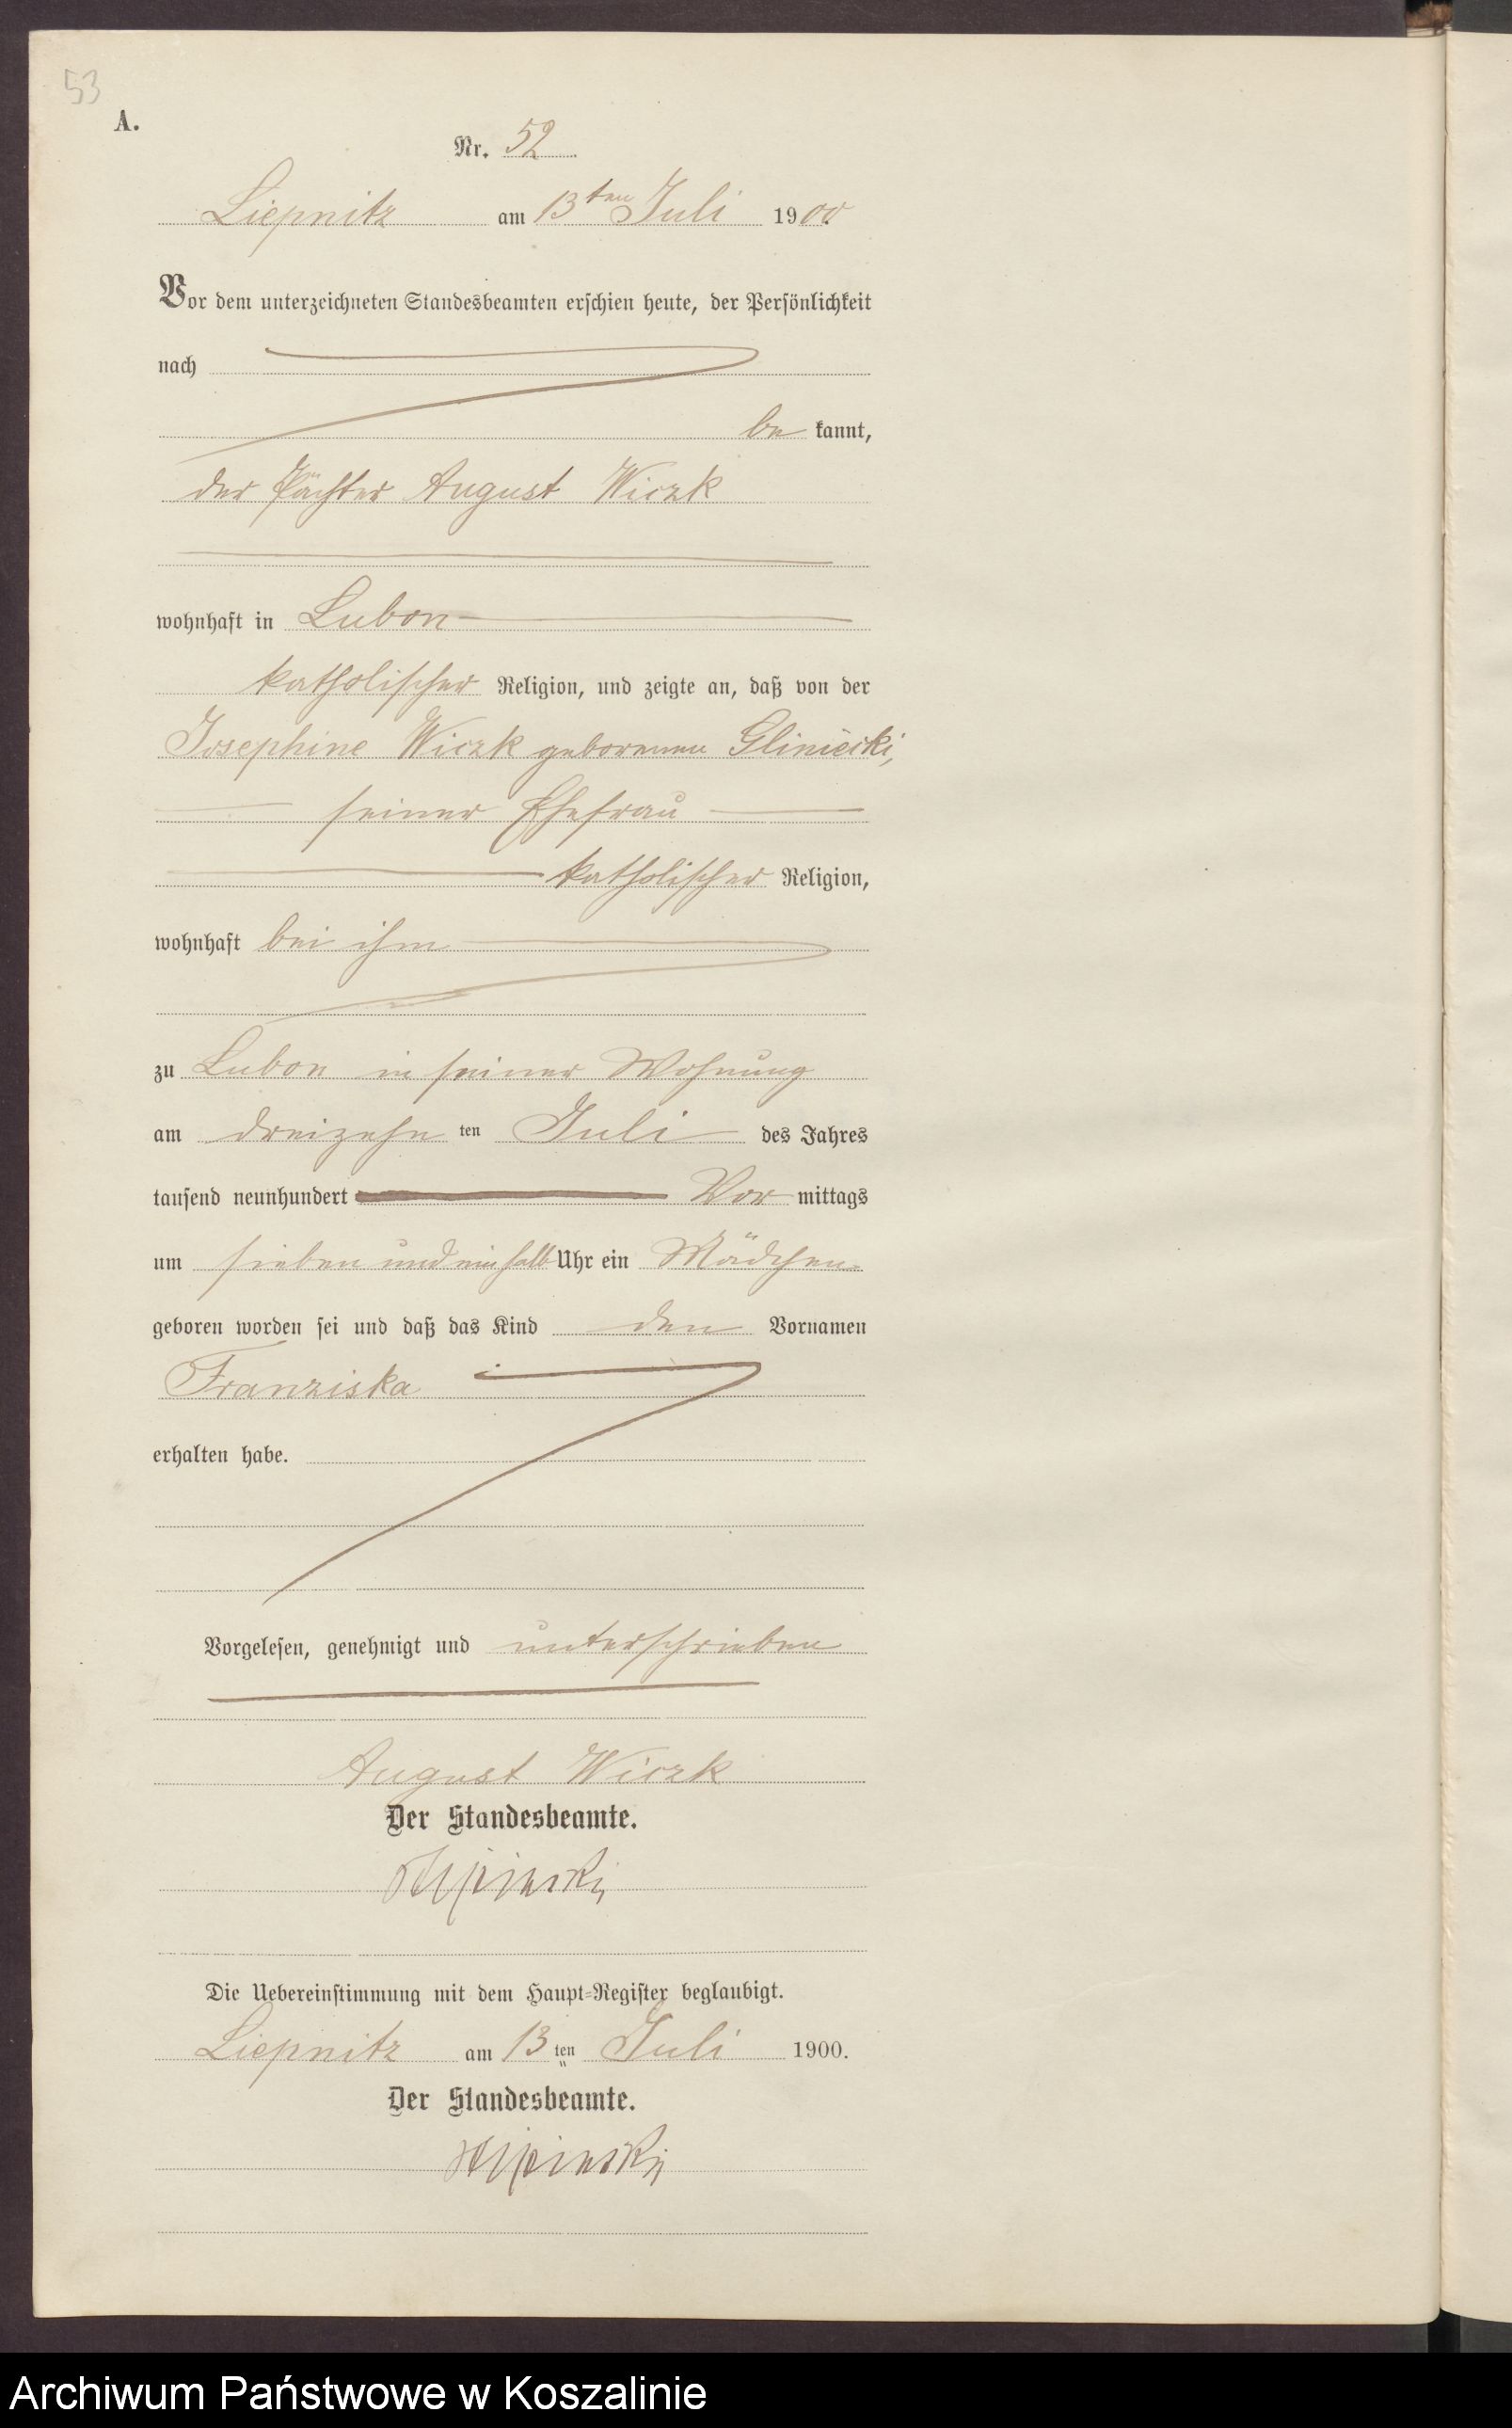 53
A.
Nr. 52
Liepnitz am 13ten Juli 1900.
Vor dem unterzeichneten Standesbeamten erschien heute, der Persönlichkeit
nach
be kannt,
der Pächter August Wiczk
wohnhaft in Lubon
katholischer Religion, und zeigte an, daß von der
Josephine Wiczk geborenen Gliniecki,
seiner Ehefrau
katholischer Religion,
wohnhaft bei ihm
zu Lubon in seiner Wohnung
am dreizehn ten Juli des Jahres
tausend neunhundert Vor mittags
um sieben und ein halb Uhr ein Mädchen
geboren worden sei und daß das Kind den Vornamen
Franziska
erhalten habe.
Vorgelesen, genehmigt und unterschrieben
August Wiczk
Der Standesbeamte.
Die Uebereinstimmung mit dem Haupt-Register beglaubigt.
Liepnitz am 13 ten Juli 1900.
Der Standesbeamte.
Archiwum Państwowe w Koszalinie